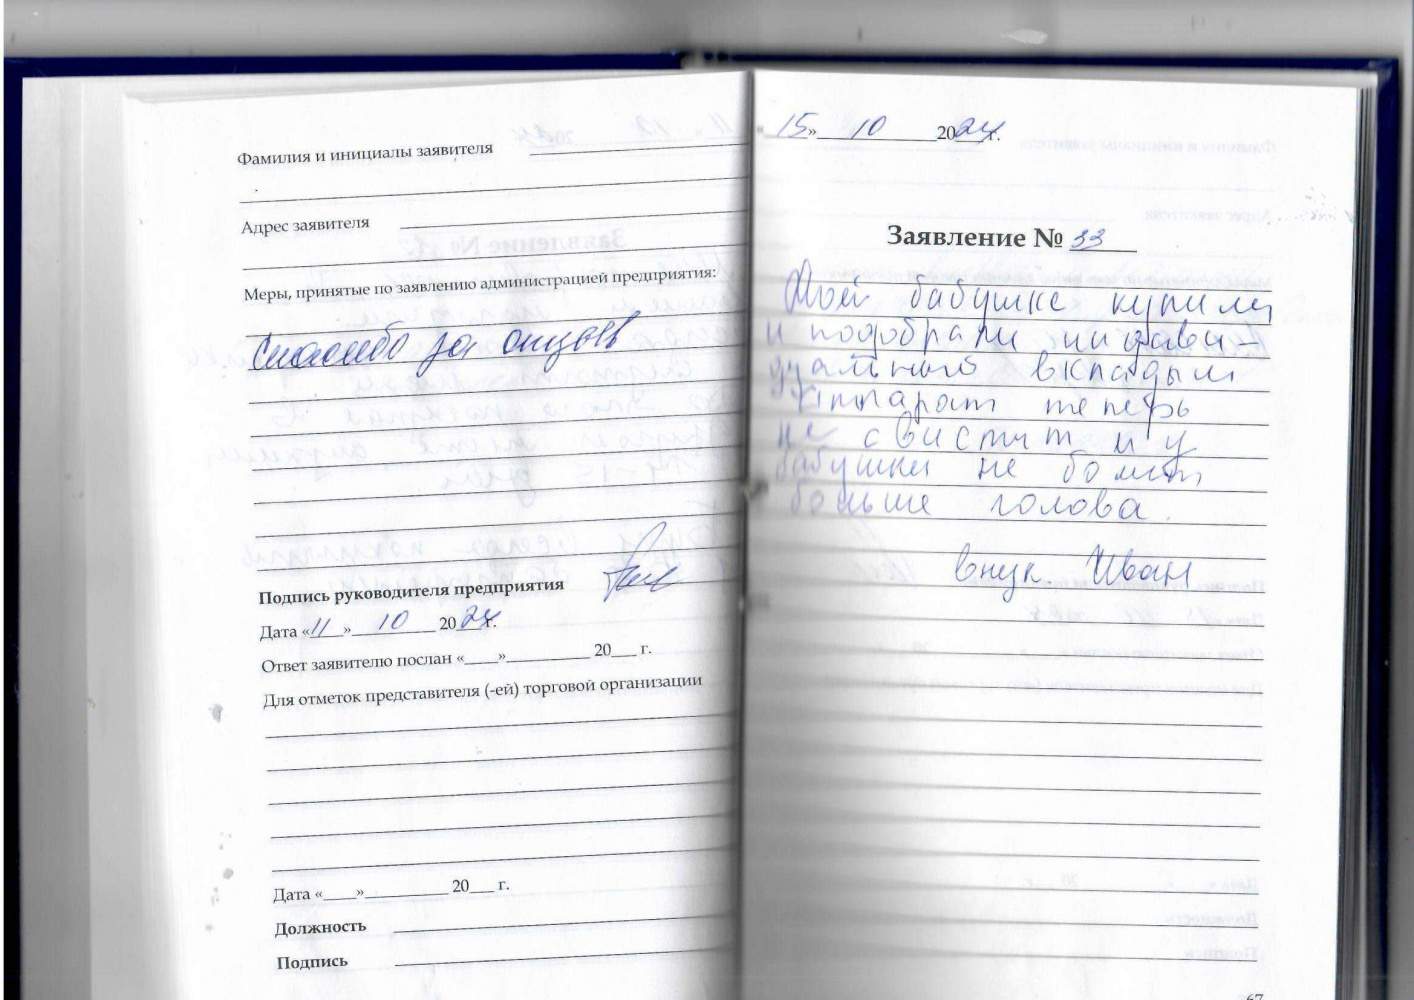 Фамилия и инициалы заявителя
Адрес заявителя
Меры, принятые по заявлению администрацией предприятия:
Спасибо за отзыв
Подпись руководителя предприятия
Дата «11» 10 2024 г.
Ответ заявителю послан «____»__________ 20___ г.
Для отметок представителя (-ей) торговой организации
Дата «____»__________ 20___ г.
Должность
Подпись
15» 10 2024 г.
Заявление № 33
Моей бабушке купили
и подобрали индиви-
дуальный вкладыш
Аппарат теперь
не свистит и у
бабушки не болит
больше голова.
внук Иван
67